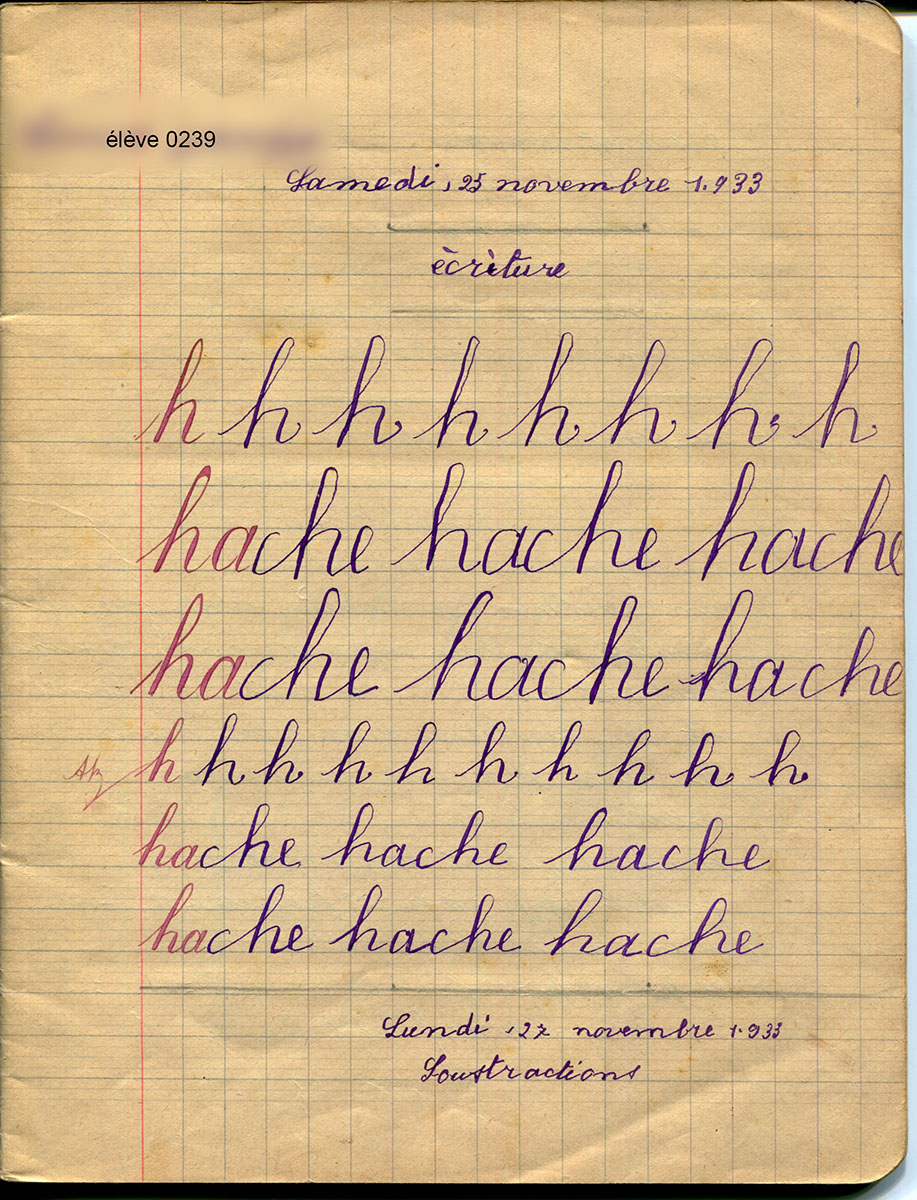 élève 0239
Samedi, 25 novembre 1.933
ècrìture
h h h h h h h h
hache hache hache
hache hache hache
h h h h h h h h h h
hache hache hache
hache hache hache
Lundi, 27 novembre 1.933
Soustractions